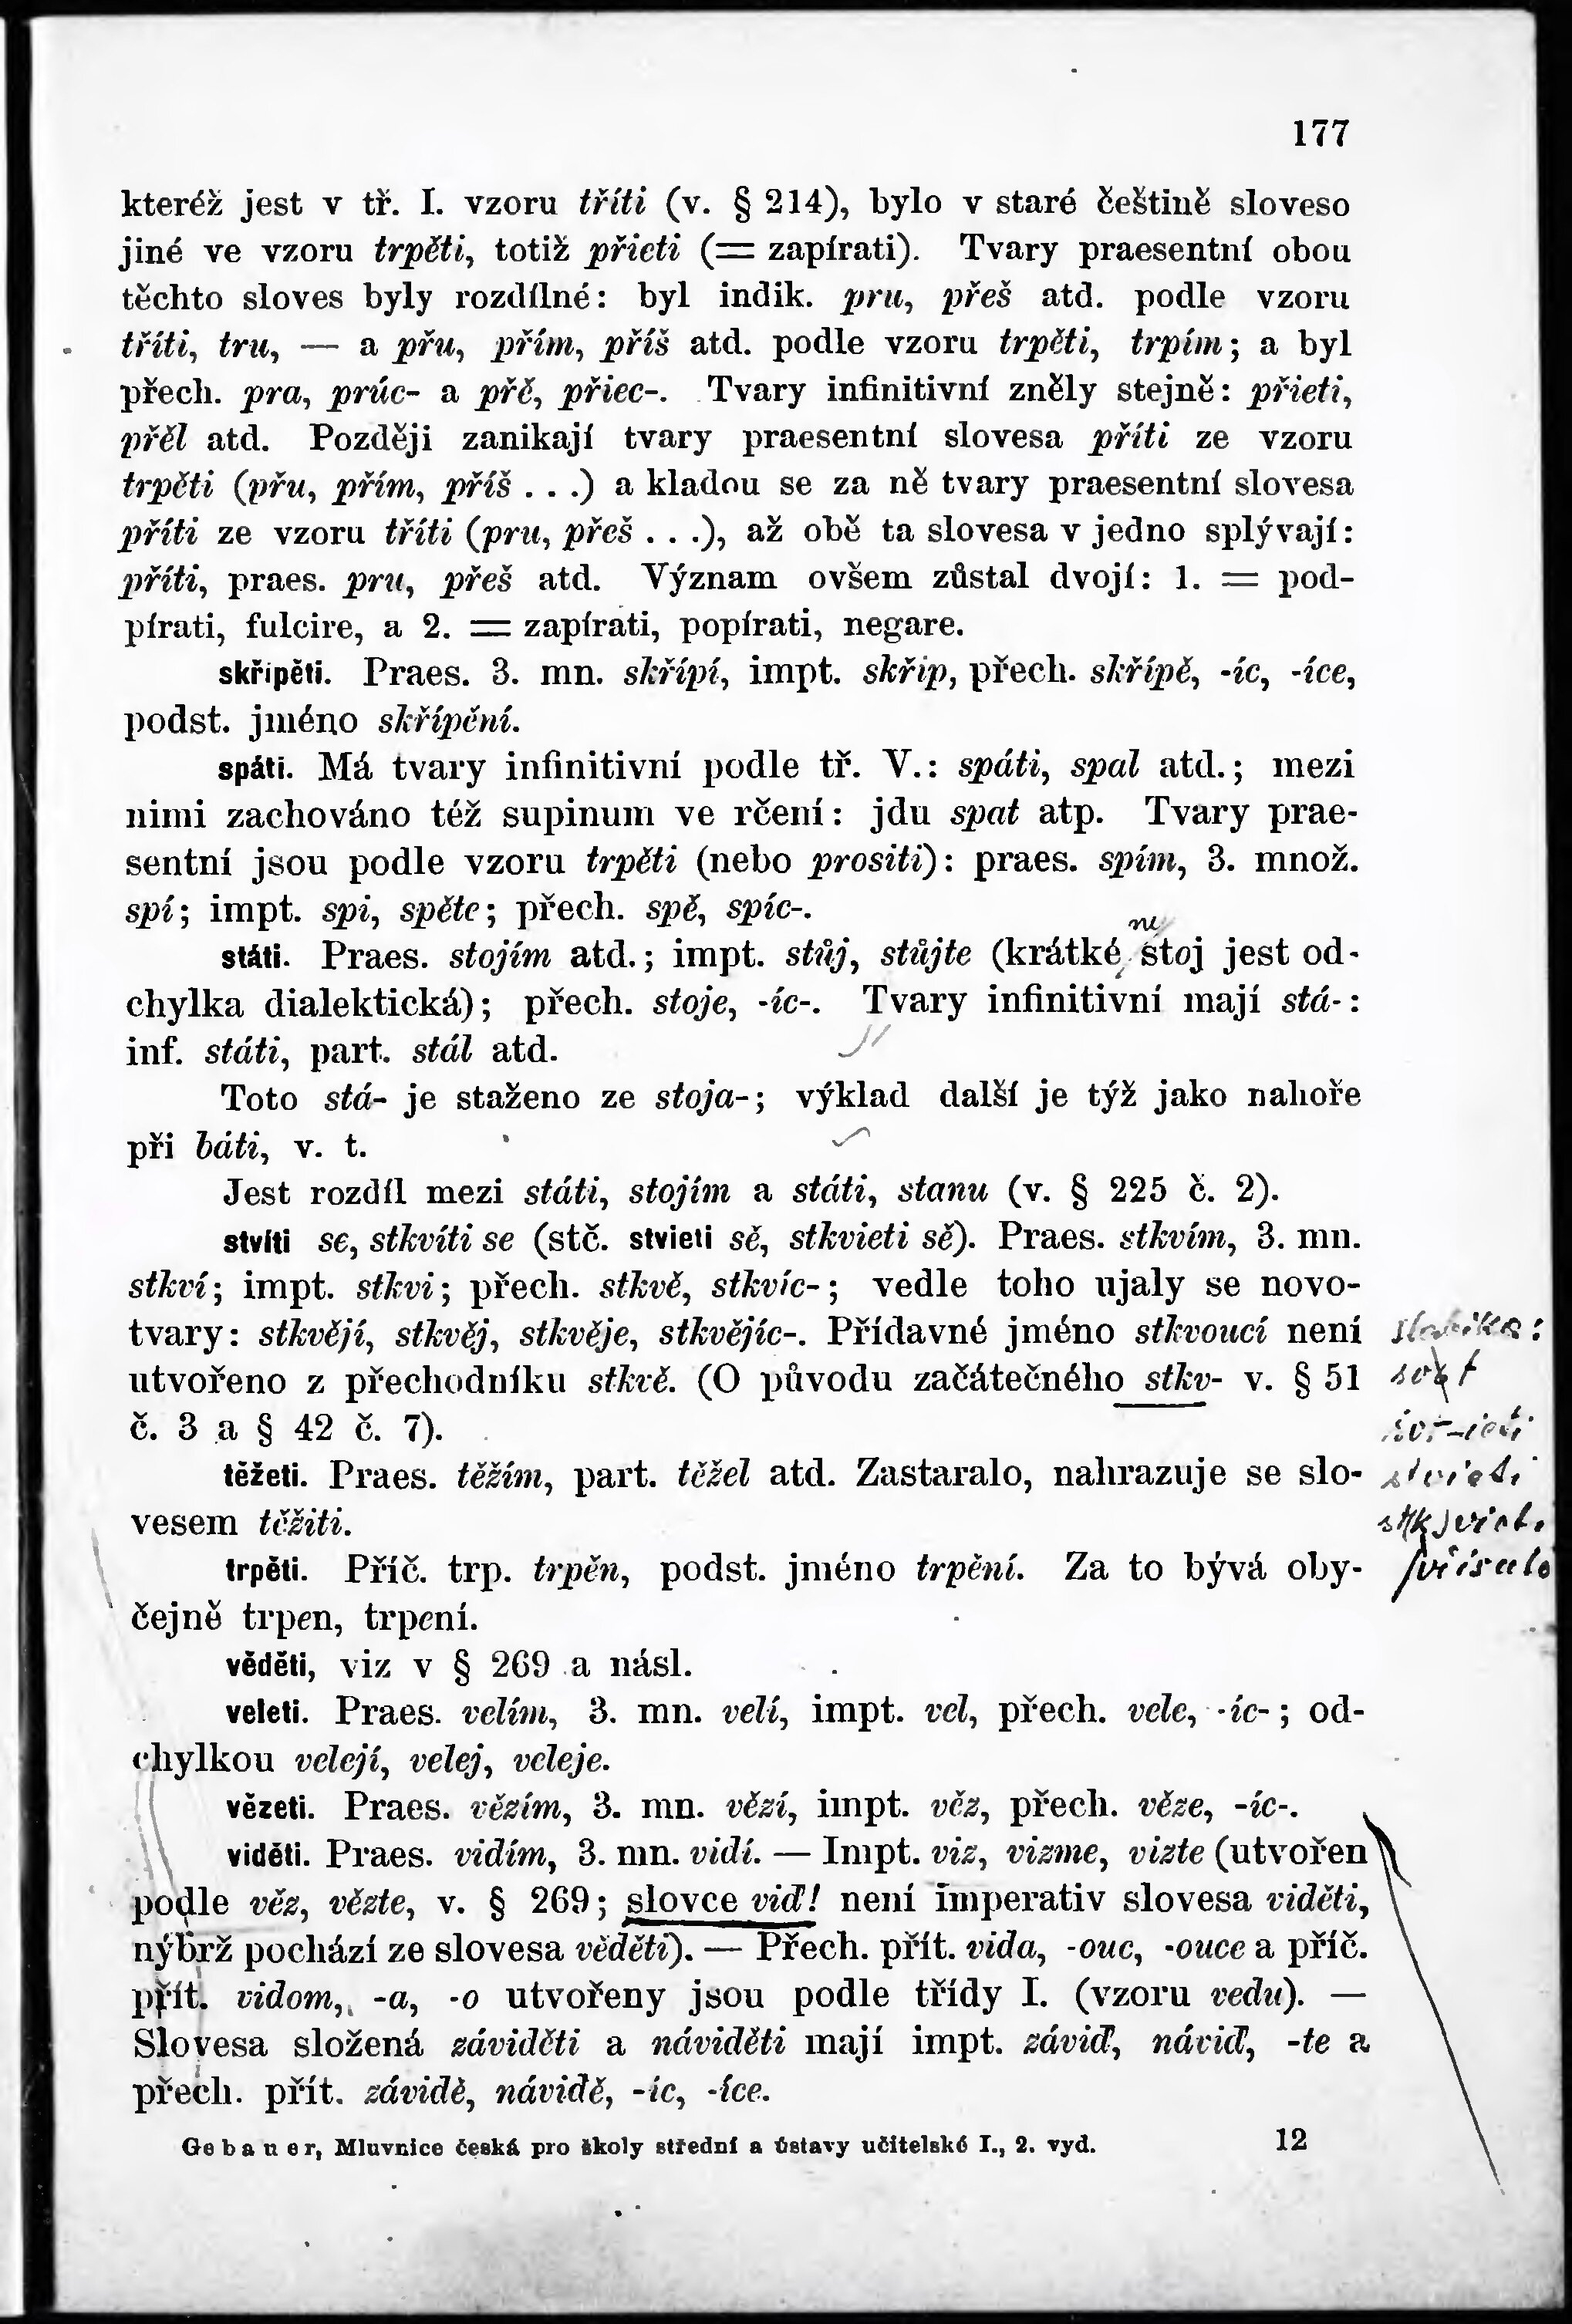 177
kteréž jest v tř. I. vzoru tříti (v. § 214), bylo v staré češtině sloveso
jiné ve vzoru trpěti, totiž přieti (= zapírati). Tvary praesentní obou
těchto sloves byly rozdílné: byl indik. pru, přeš atd. podle vzoru
tříti, tru, — a přu, přím, příš atd. podle vzoru trpěti, trpím; a byl
přech. pra, prúc- a přě, přiec-. Tvary infinitivní zněly stejně: přieti,
přěl atd. Později zanikají tvary praesentní slovesa příti ze vzoru
trpěti (přu, přím, příš . . .) a kladou se za ně tvary praesentní slovesa
příti ze vzoru tříti (pru, přeš . . .), až obě ta slovesa v jedno splývají:
příti, praes. pru, přeš atd. Význam ovšem zůstal dvojí: 1. = pod-
pírati, fulcire, a 2. = zapírati, popírati, negare.
skřípěti. Praes. 3. mn. skřípí, impt. skřip, přech. skřípě, -íc, -íce,
podst. jméno skřípění.
spáti. Má tvary infinitivní podle tř. V.: spáti, spal atd.; mezi
nimi zachováno též supinum ve rčení: jdu spat atp. Tvary prae-
sentní jsou podle vzoru trpěti (nebo prositi): praes. spím, 3. množ.
spí; impt. spi, spěte; přech. spě, spíc-.
ne
státi. Praes. stojím atd.; impt. stůj, stůjte (krátké stoj jest od-
chylka dialektická); přech. stoje, -íc-. Tvary infinitivní mají stá-:
inf. státi, part. stál atd.
Toto stá- je staženo ze stoja-; výklad další je týž jako nahoře
při báti, v. t.
Jest rozdíl mezi státi, stojím a státi, stanu (v. § 225 č. 2).
stvíti se, stkvíti se (stč. stvieti sě, stkvieti sě). Praes. stkvím, 3. mn.
stkví; impt. stkvi; přech. stkvě, stkvíc-; vedle toho ujaly se novo-
tvary: stkvějí, stkvěj, stkvěje, stkvějíc-. Přídavné jméno stkvoucí není
utvořeno z přechodníku stkvě. (O původu začátečného stkv- v. § 51
č. 3 a § 42 č. 7).
těžeti. Praes. těžím, part. těžel atd. Zastaralo, nahrazuje se slo-
vesem těžiti.
trpěti. Příč. trp. trpěn, podst. jméno trpění. Za to bývá oby-
čejně trpen, trpení.
věděti, viz v § 269 a násl.
veleti. Praes. velím, 3. mn. velí, impt. vel, přech. vele, -íc-; od-
chylkou velejí, velej, veleje.
vězeti. Praes. vězím, 3. mn. vězí, impt. věz, přech. věze, -íc-.
viděti. Praes. vidím, 3. mn. vidí. — Impt. viz, vizme, vizte (utvořen
podle věz, vězte, v. § 269; slovce viď! není imperativ slovesa viděti,
nýbrž pochází ze slovesa věděti). — Přech. přít. vida, -ouc, -ouce a příč.
přít. vidom, -a, -o utvořeny jsou podle třídy I. (vzoru vedu). —
Slovesa složená záviděti a náviděti mají impt. záviď, náviď, -te a
přech. přít. závidě, návidě, -íc, -íce.
Gebauer, Mluvnice česká pro školy střední a ústavy učitelské I., 2. vyd. 12